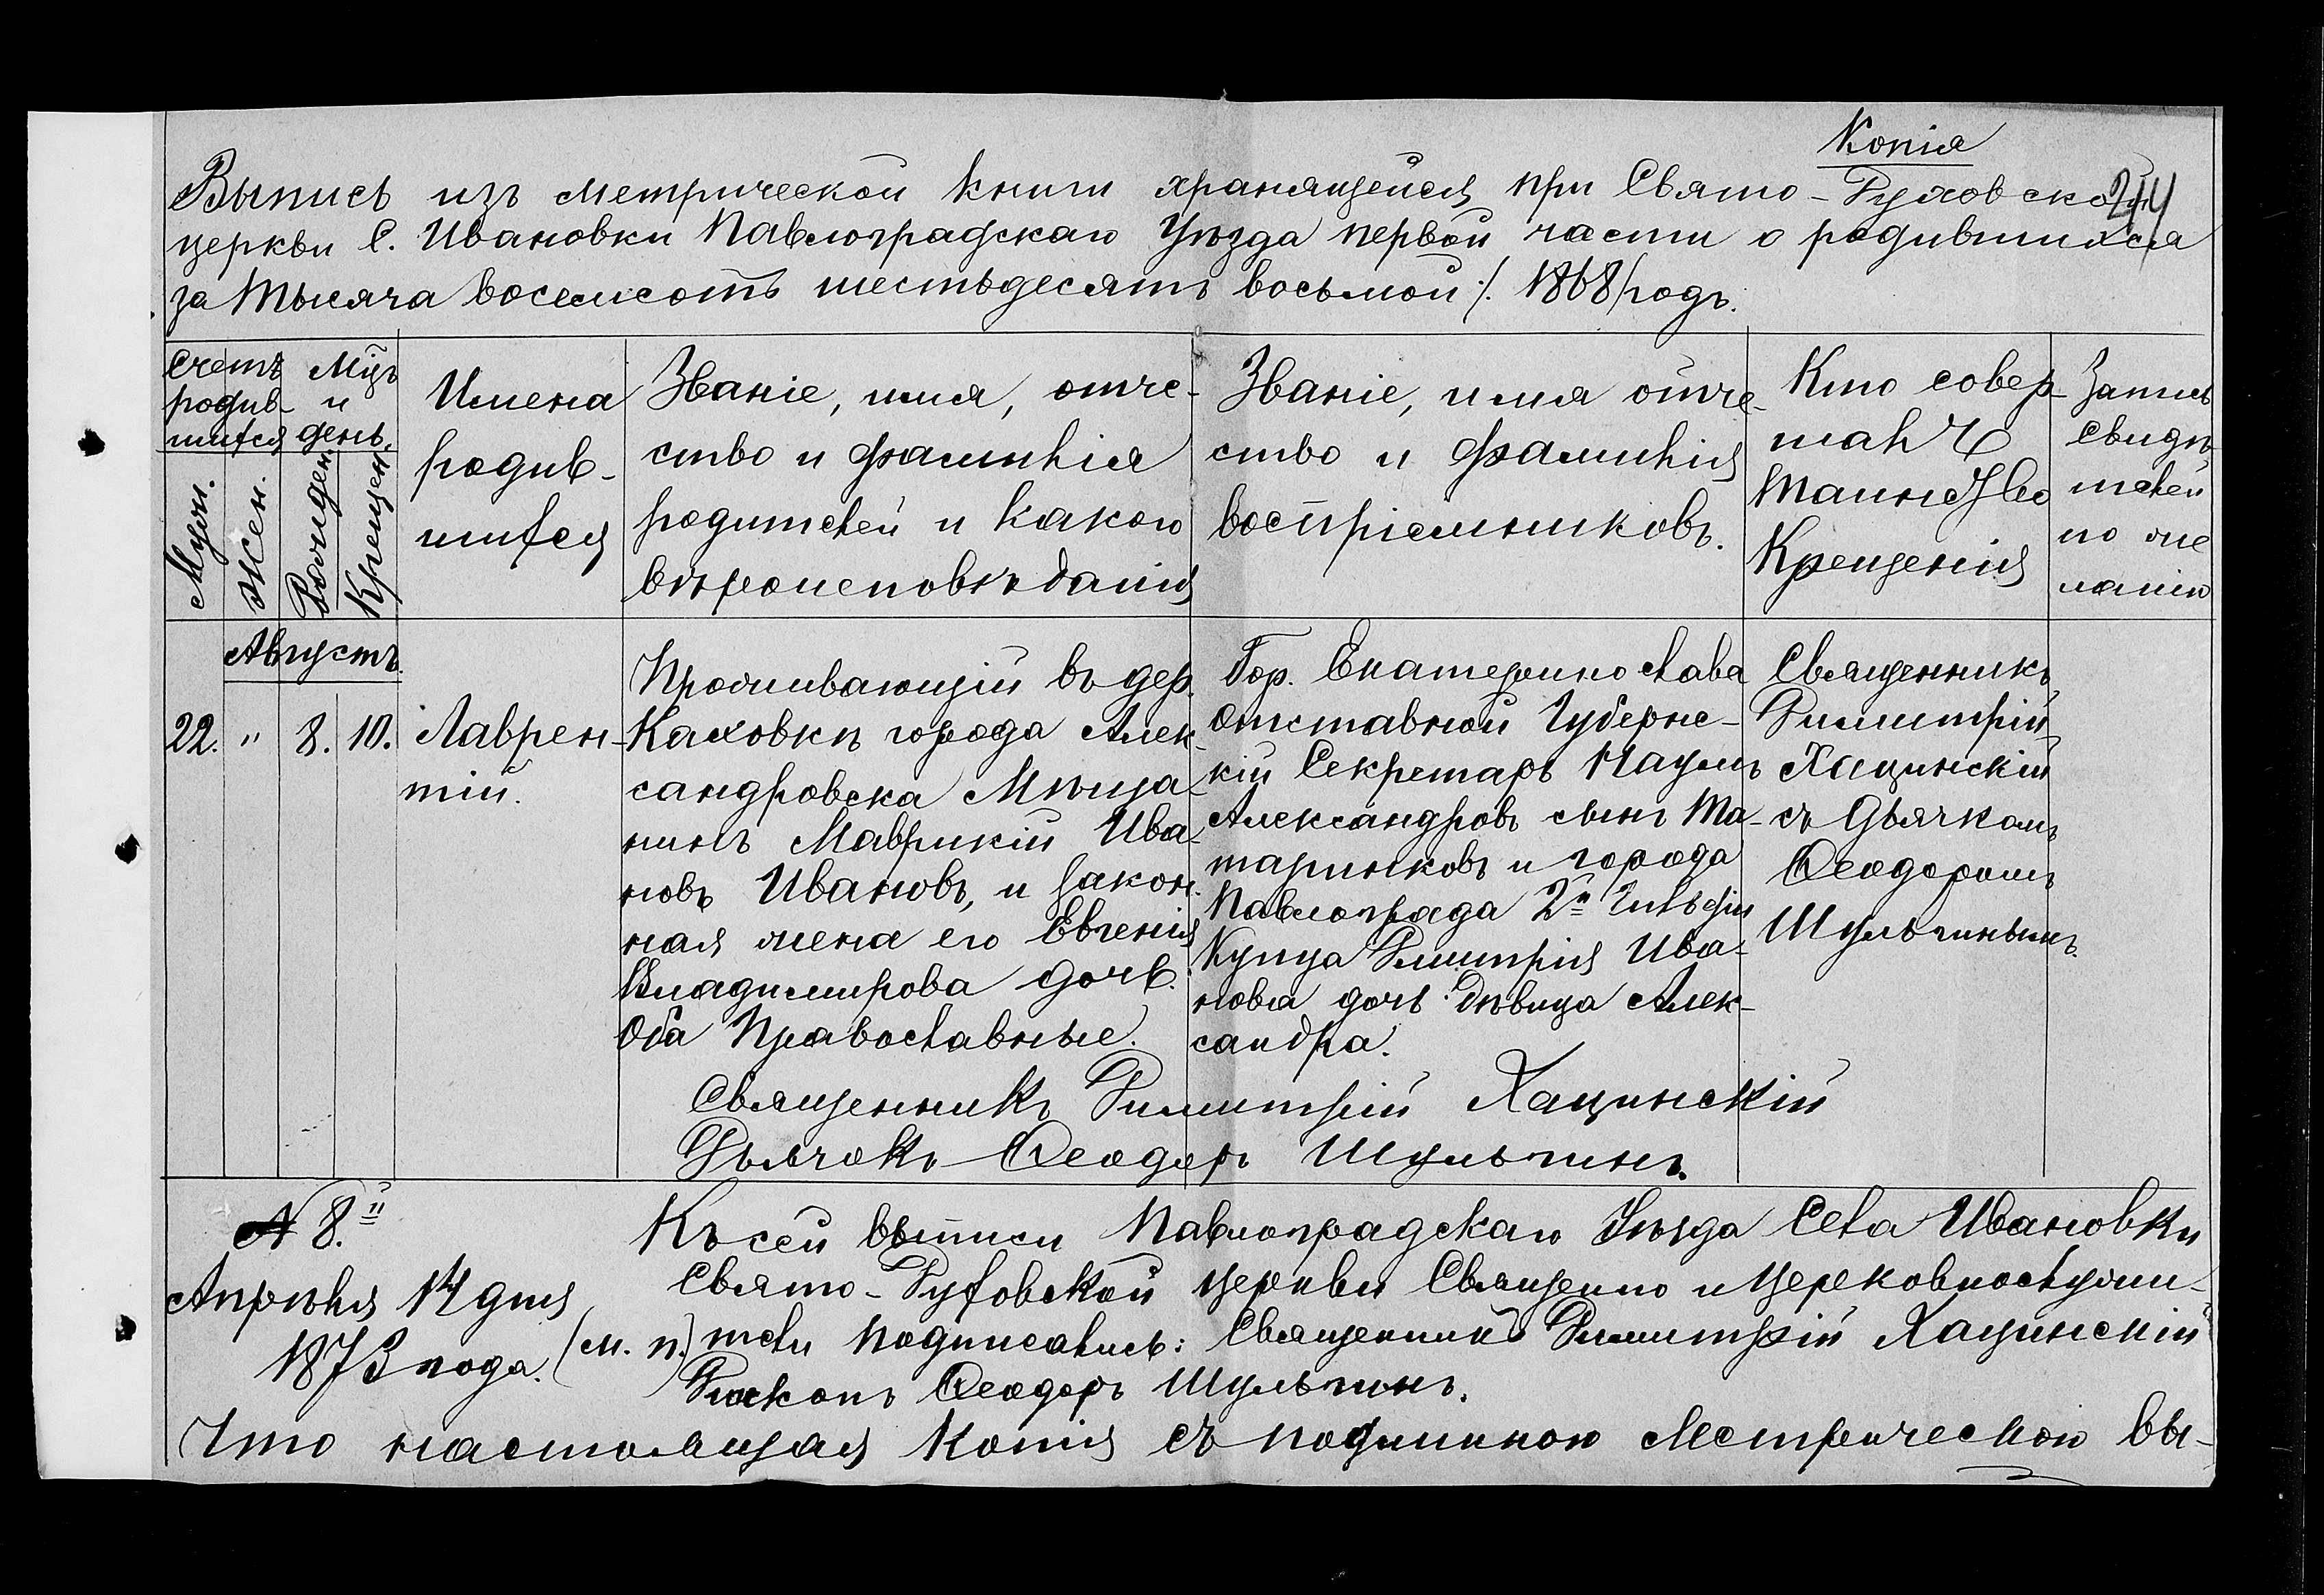 Копія
244
Выпись изъ метрической книги хранящейся при Свято-Духовской
церкви С. Ивановки Павлоградскаго Уѣзда первой части о родившихся
за тысяча восемсотъ шестьдесятъ восьмой /. 1868/ годъ.
Счетъ родив-шихся
Муж.
Жен.
Мцъ и день.
Рожден.
Крещен.
Имена
родив-
шихся
Званіе, имя, отче-
ство и фамилія
родителей и какого
вѣроисповѣданія
Званіе, имя отче-
ство и фамилія
воспріемниковъ.
Кто совер-
шалъ
Таинство
Крещенія
Запись
свидѣ
телей
по же
ланію
Августъ.
22. " 8. 10.
Лаврен-
тій.
Проживающій въ дер.
Каховкѣ города Алек-
сандровска Мѣща-
нинъ Маврикій Ива-
новъ Ивановъ, и закон-
ная жена его Евгенія
Владимирова дочь.
Оба Православные.
Гор. Екатеринослава
отставной Губернс-
кій Секретарь Наумъ
Александровъ сынъ Ма-
таринковъ и города
Павлограда 2й Гильдіи
Купца Димитрія Ива-
нова дочь дѣвица Алек-
сандра.
Священникъ
Димитрій
Хацинскій
съ Дьячкомъ
Ѳеодоромъ
Шульгинымъ.
Священникъ Димитрій Хацинскій
Дьячокъ Ѳеодоръ Шульгинъ.
№ 8.й
Апрѣля 14 дня
1873 года.
(М. П.)
Къ сей выписи Павлоградскаго Уѣзда Села Ивановки
Свято-Духовской церкви Священно и Церковнослужи-
тели подписались: Священникъ Димитрій Хацинскій
Дьяконъ Ѳеодоръ Шульгинъ.
Что настоящая копія съ подлинною Метрическою вы-